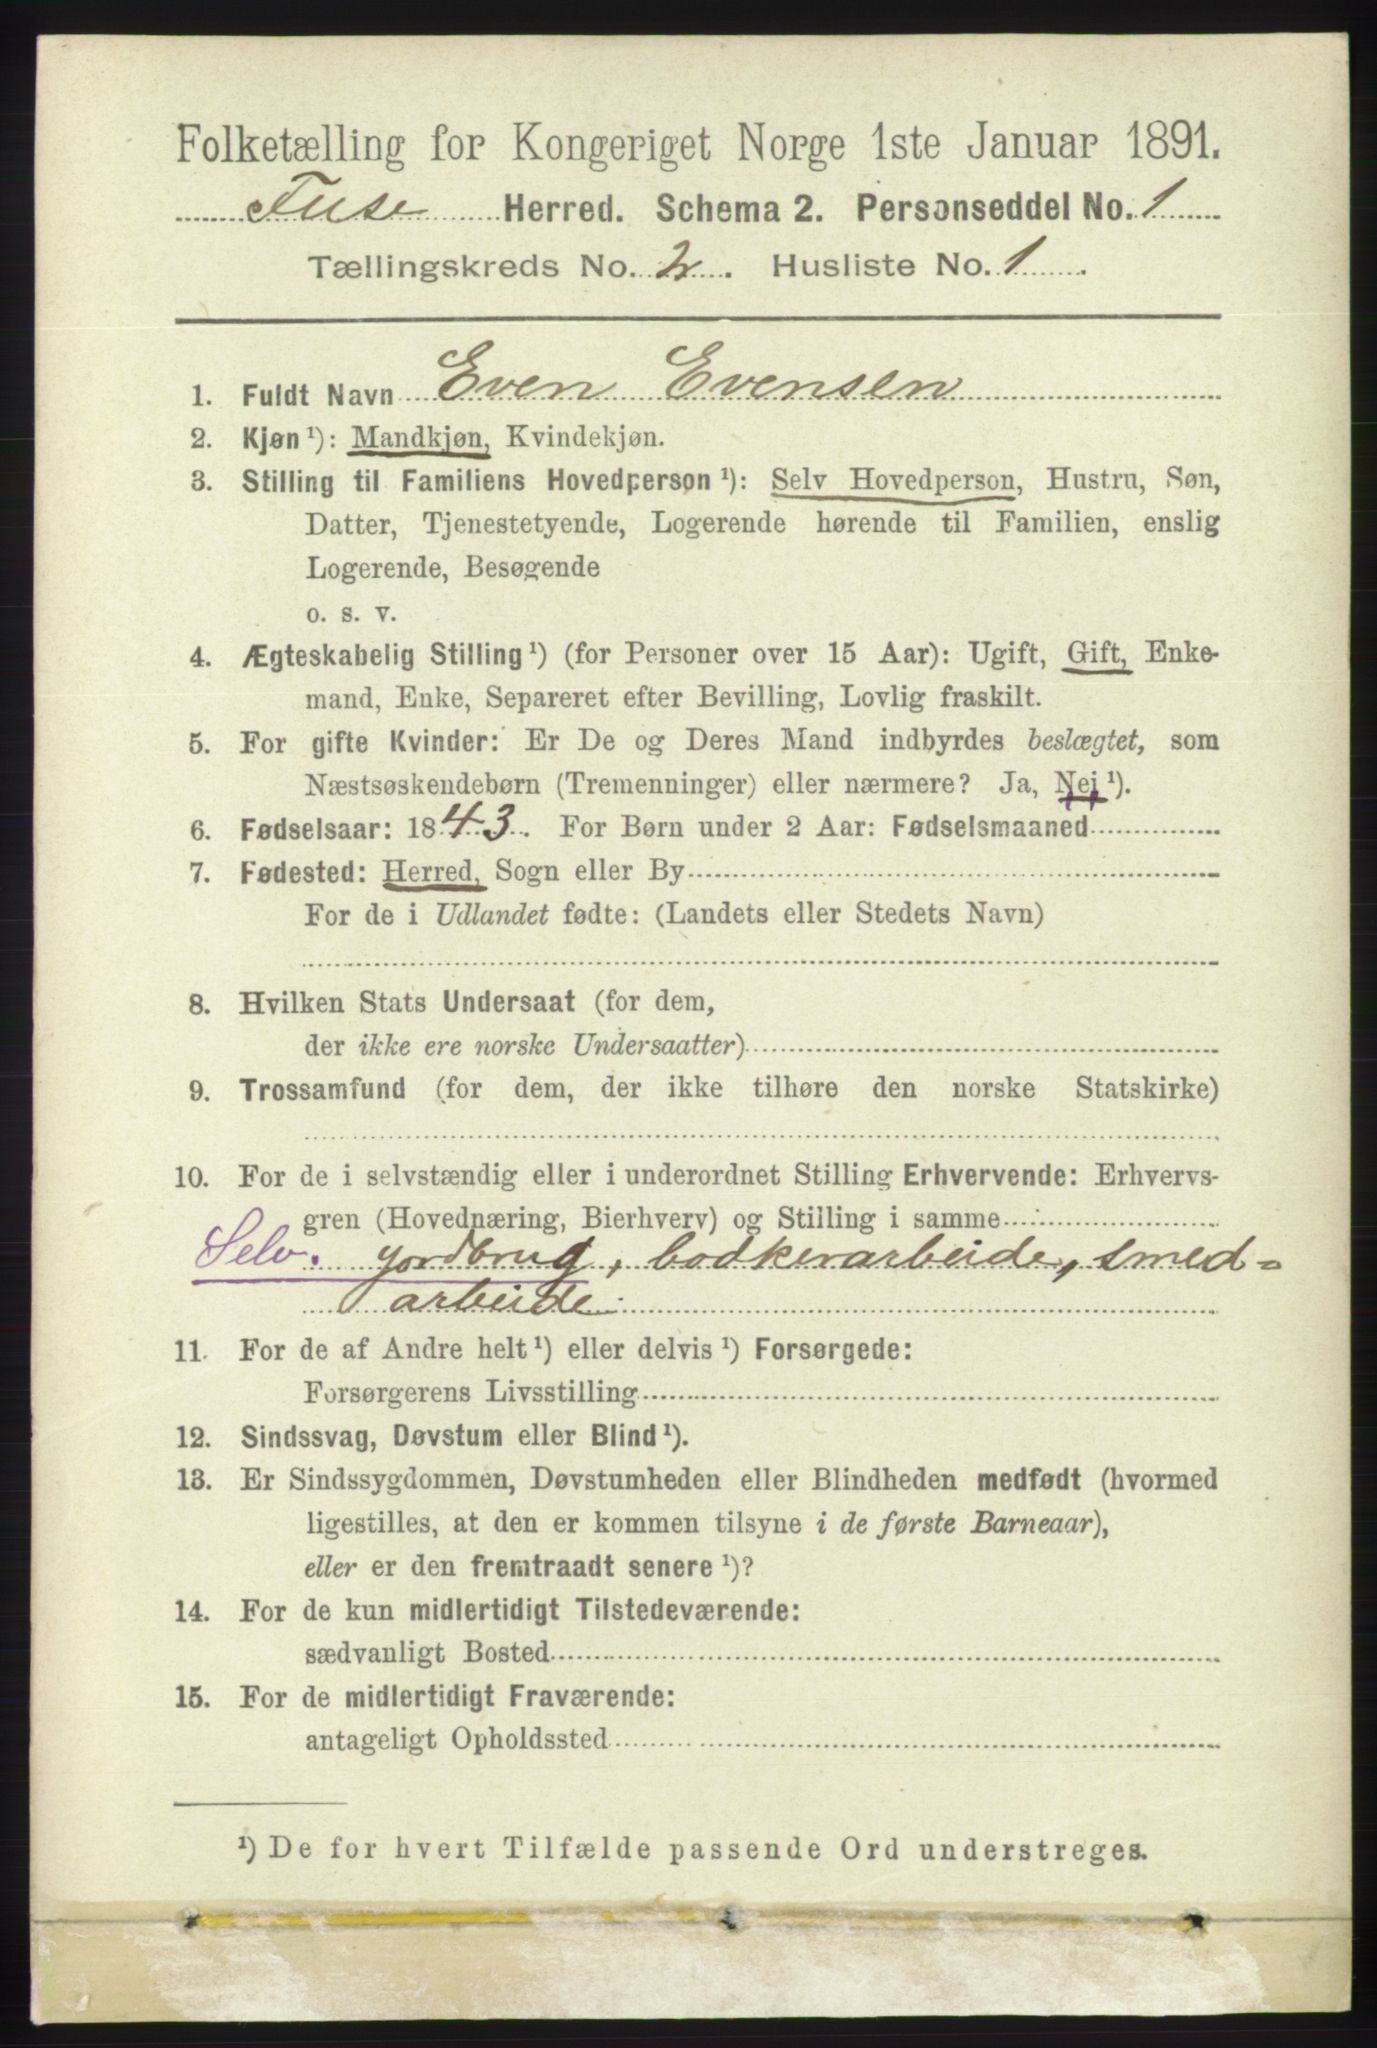 Folketælling for Kongeriget Norge 1ste Januar 1891.
Fuse Herred. Schema 2. Personseddel No. 1
Tællingskreds No. 2. Husliste No. 1
1. Fuldt Navn Even Evensen
2. Kjøn ¹): Mandkjøn, Kvindekjøn.
3. Stilling til Familiens Hovedperson ¹): Selv Hovedperson, Hustru, Søn,
Datter, Tjenestetyende, Logerende hørende til Familien, enslig
Logerende, Besøgende
o. s. v.
4. Ægteskabelig Stilling ¹) (for Personer over 15 Aar): Ugift, Gift, Enke-
mand, Enke, Separeret efter Bevilling, Lovlig fraskilt.
5. For gifte Kvinder: Er De og Deres Mand indbyrdes beslægtet, som
Næstsøskendebørn (Tremenninger) eller nærmere? Ja, Nej ¹).
6. Fødselsaar: 1843. For Børn under 2 Aar: Fødselsmaaned
7. Fødested: Herred, Sogn eller By
For de i Udlandet fødte: (Landets eller Stedets Navn)
8. Hvilken Stats Undersaat (for dem,
der ikke ere norske Undersaatter)
9. Trossamfund (for dem, der ikke tilhøre den norske Statskirke)
10. For de i selvstændig eller i underordnet Stilling Erhvervende: Erhvervs-
gren (Hovednæring, Bierhverv) og Stilling i samme
Selv. jordbrug, bødkerarbeide, smed-
arbeide
11. For de af Andre helt ¹) eller delvis ¹) Forsørgede:
Forsørgerens Livsstilling
12. Sindssvag, Døvstum eller Blind ¹).
13. Er Sindssygdommen, Døvstumheden eller Blindheden medfødt (hvormed
ligestilles, at den er kommen tilsyne i de første Barneaar),
eller er den fremtraadt senere ¹)?
14. For de kun midlertidigt Tilstedeværende:
sædvanligt Bosted
15. For de midlertidigt Fraværende:
antageligt Opholdssted
¹) De for hvert Tilfælde passende Ord understreges.